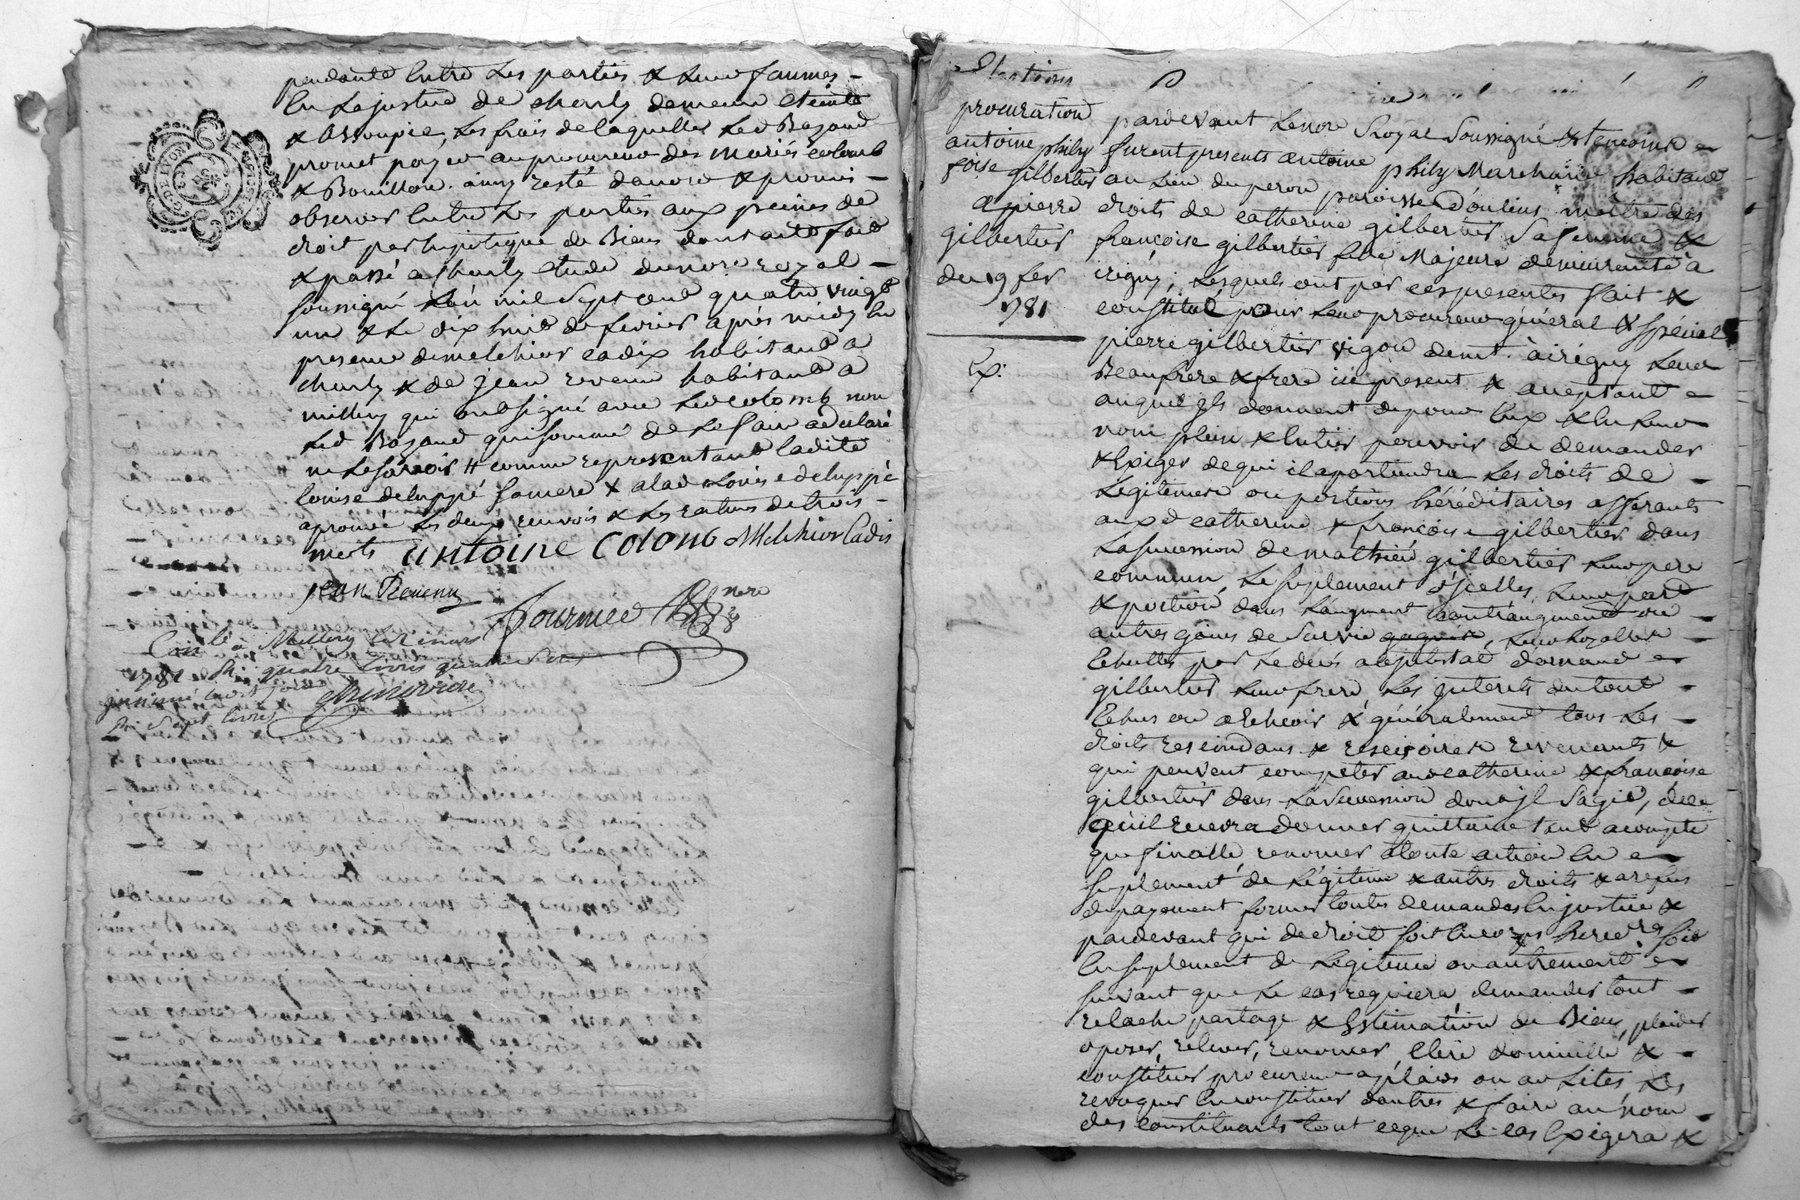 pendante entre les parties & leurs faumes -
en la justice de charly demeure éteinte
& assoupie, les frais de laquelle led Bazand
promet payer au procureur des mariés colomb
& Bouillon. ainsy resté d'accord & promis -
observer entre les parties aux peines de
droit par hypoteque de Biens dont acte fait
& passé a charly étude du nore royal -
soussigné l'an mil sept cent quatre vingt
un & le dix huit de fevrier après midy en
presence de melchior cadix habitant a
charly & de jean revenu habitant a
millery qui ont signé avec led colomb non
led Bazand qui sommé de le faire a declaré
ne le savoir # comme representant ladite
louise deluppé sa mere x a lad Louise deluppé
aprouvé les deux renvois & les ratures de trois -
mots antoine colomb Melchior Cadix
jean Revenu
fournier nore
Con lé à Millery le mars
1781 Rc quatre livres quatre sols
Rc sept livres
procuration
antoine phily
foise gilbertier
a pierre
gilbertier
du 19 fer
1781
Ex:
pardevant le nore Royal soussigné & temoins -
furent presents antoine phily Marchand habitant
au lieu du peron paroisse d'oulins, maitre des
droits de catherine gilbertier sa femme &
françoise gilbertier fille Majeure demeurante à
irigny; lesquels ont par ces presentes fait &
constitué pour leur procureur général & spécial
pierre gilbertier vigon demt. à irigny leur
Beaufrere & frere icy present & acceptant -
auquel ils donnent de pour eux & en leur
nom plein & entier pouvoir de demander
& exiger de qui il apartiendra les droits de -
Legitime ou portions héréditaires afferants
aux d catherine & françoise gilbertier dans
la succession de mathieu gilbertier leur pere
commun, le suplement d'icelles, leur part
& portion dans l'augment contraugment ou
autres gains de survie gagnés, leur hoallrie -
échettes par le decès ab jntestat d'arnaud -
gilbertier leur frere les jnterets du tout -
échus ou a echeoir & généralement tous les -
droits rescindans & rescisoires revenants &
qui peuvent competer aux catherine & françoise
gilbertier dans la succession dont jl s'agit, de ce
qu'il recevra donner quittance tant a compte
que finalle renoncer a toute action en -
suplement de légitime & autres droits & a refus
de payement former toutes demandes en justice &
pardevant qui de droit soit
en suplement de légitime ou autrement -
suivant que le cas requiera, demander tout -
relache partage & Estimation de Biens, plaider
oposer, relever, renoncer, elire domicille & -
constituer procureur a plaids ou ad lites, les
revoquer en constituer d'autres & faire au nom -
des constituants tout ce que le cas exigera &